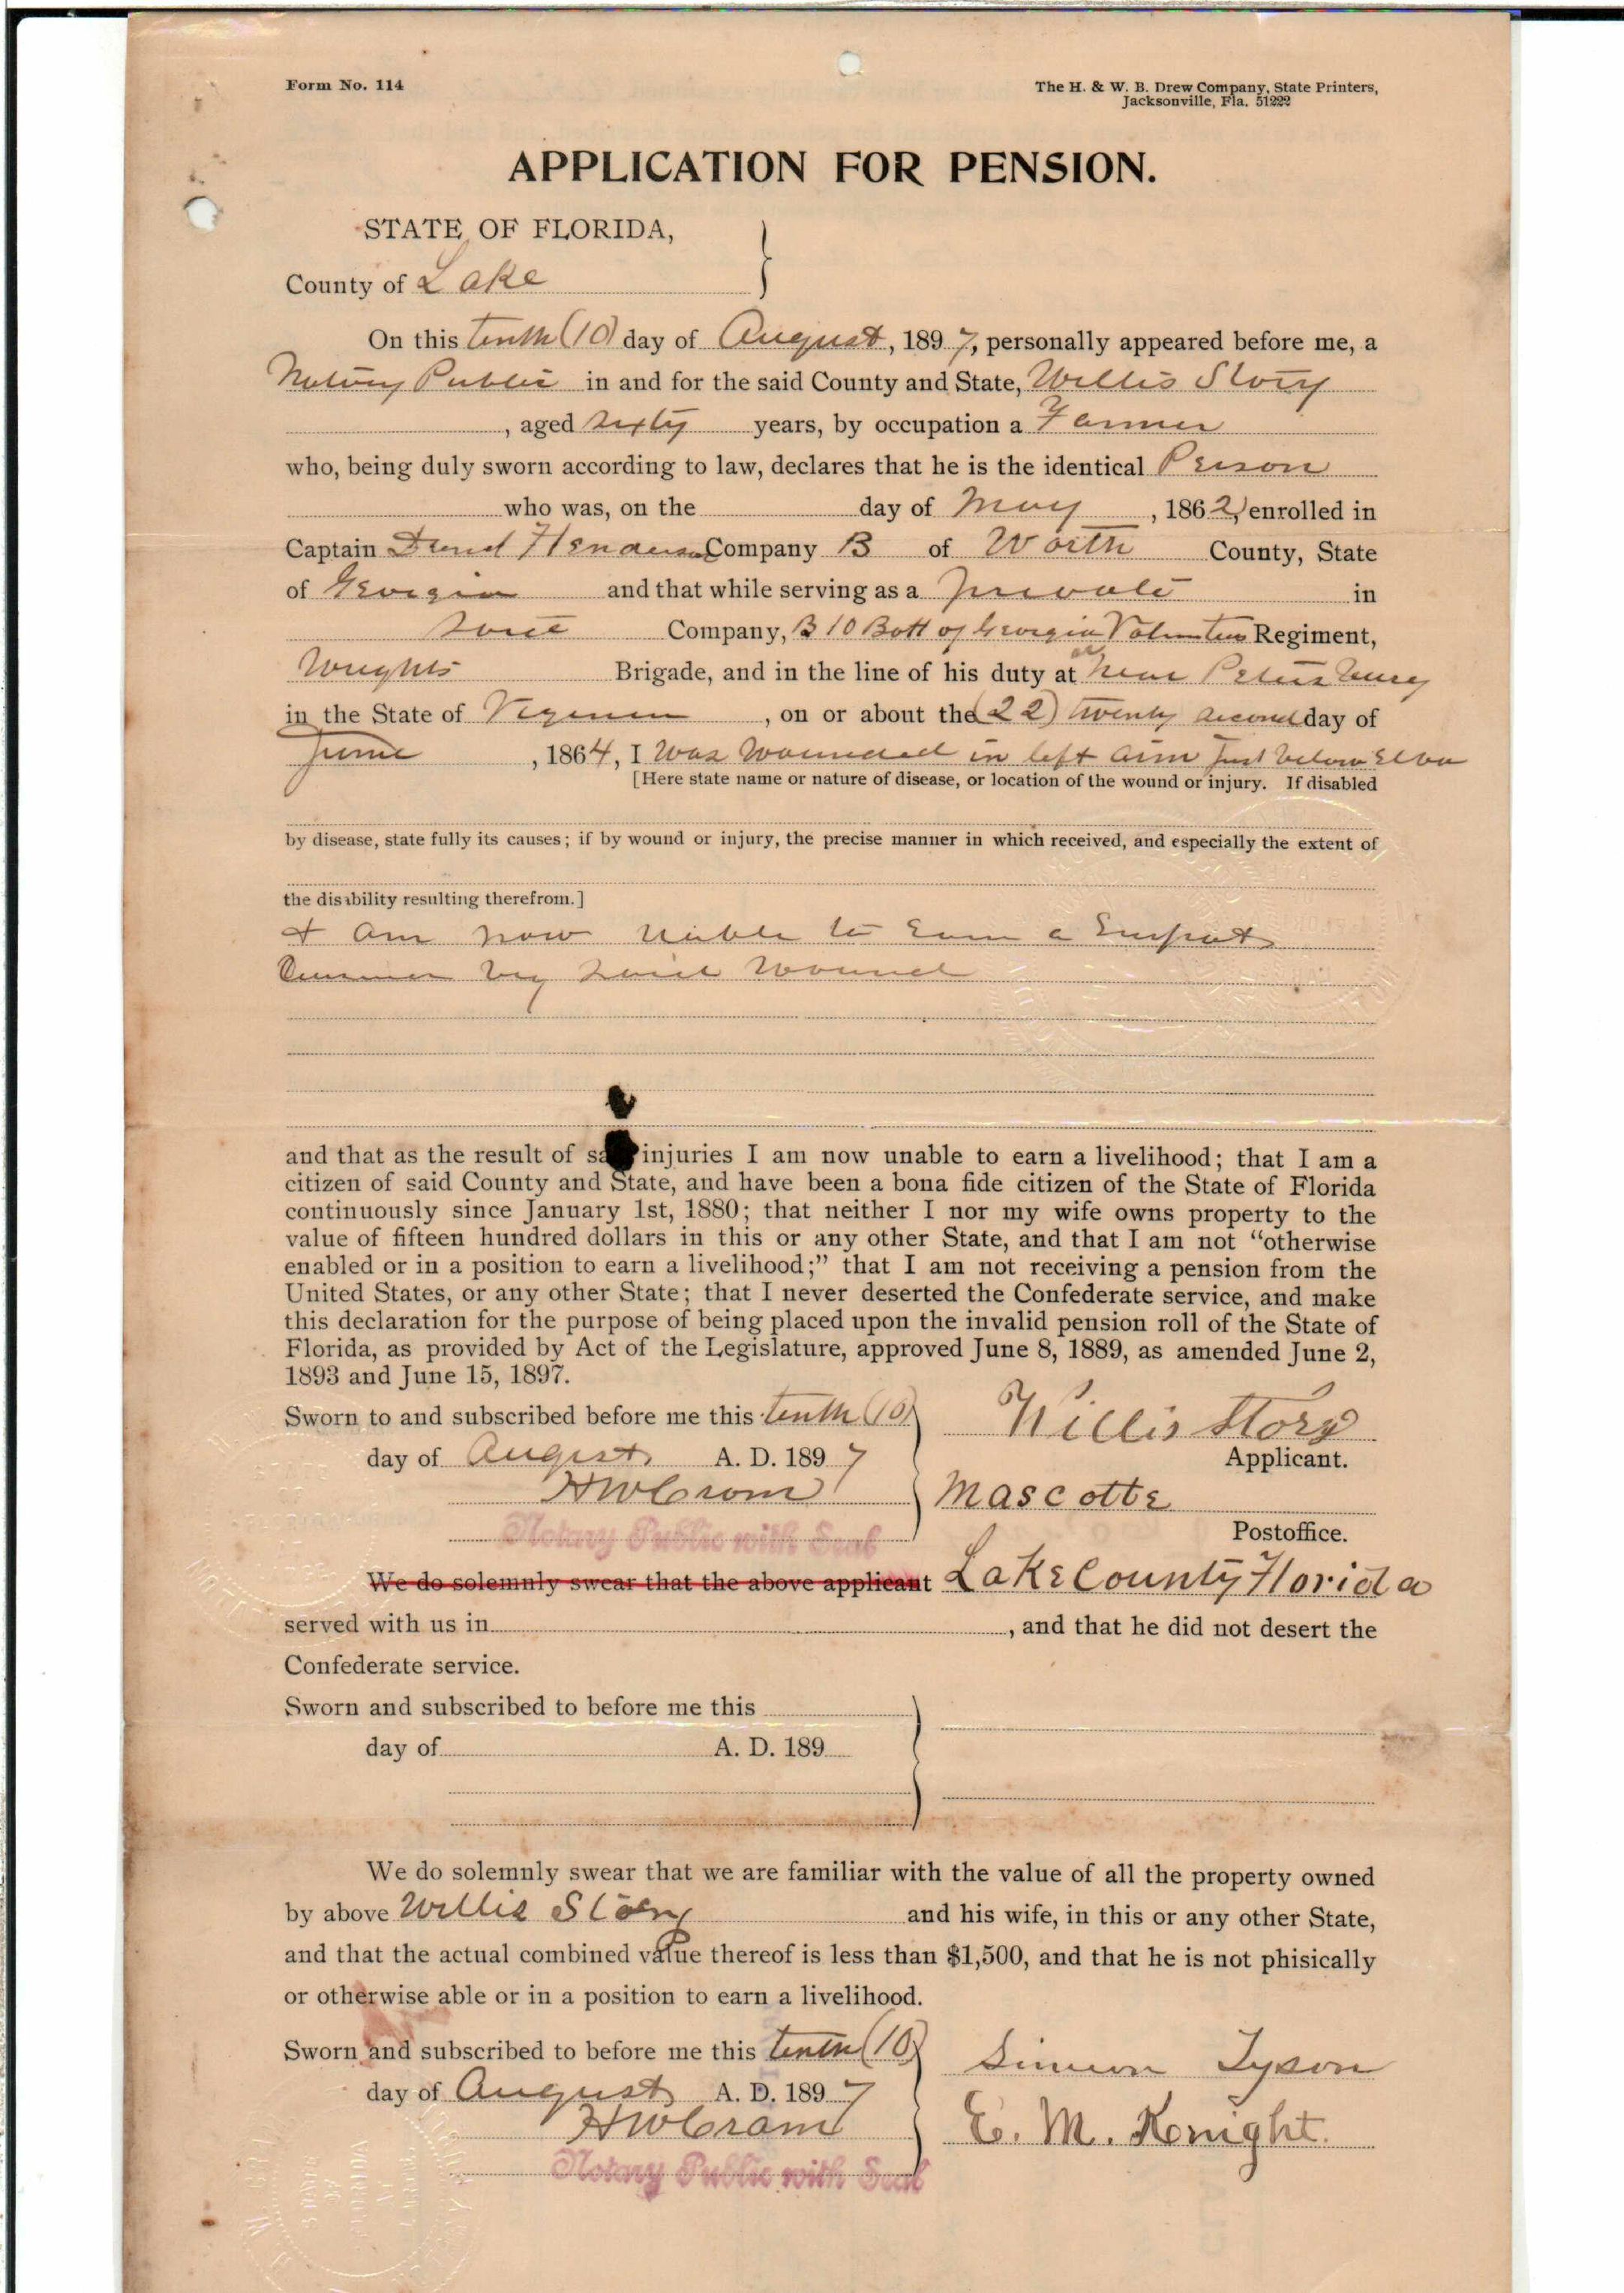 Form No. 114
The H. & W. B. Drew Company, State Printers,
Jacksonville, Fla. 51222
APPLICATION FOR PENSION.
STATE OF FLORIDA,
County of Lake
On this tenth (10) day of August, 1897, personally appeared before me, a
Notary Public in and for the said County and State, Willis Story
, aged sixty years, by occupation a Farmer
who, being duly sworn according to law, declares that he is the identical Person
who was, on the day of May, 1862, enrolled in
Captain Henderson Company B of Worth County, State
of Georgia and that while serving as a private in
Company, B 10 Batt of Georgia Volunteers Regiment,
Wrights Brigade, and in the line of his duty at or near Petersburg
in the State of , on or about the (22) twenty second day of
June, 1864, I was wounded in left arm just below
[Here state name or nature of disease, or location of the wound or injury. If disabled
by disease, state fully its causes; if by wound or injury, the precise manner in which received, and especially the extent of
the disability resulting therefrom.]
am now to a
by said wound
and that as the result of injuries I am now unable to earn a livelihood; that I am a
citizen of said County and State, and have been a bona fide citizen of the State of Florida
continuously since January 1st, 1880; that neither I nor my wife owns property to the
value of fifteen hundred dollars in this or any other State, and that I am not “otherwise
enabled or in a position to earn a livelihood;” that I am not receiving a pension from the
United States, or any other State; that I never deserted the Confederate service, and make
this declaration for the purpose of being placed upon the invalid pension roll of the State of
Florida, as provided by Act of the Legislature, approved June 8, 1889, as amended June 2,
1893 and June 15, 1897.
Sworn to and subscribed before me this tenth (10)
day of August A. D. 1897
Willis Story
Applicant.
H W Crom
Mascotte
Postoffice.
Notary Public with Seal
We do solemnly swear that the above applicant Lake County Florida
served with us in , and that he did not desert the
Confederate service.
Sworn and subscribed to before me this
day of A. D. 189
We do solemnly swear that we are familiar with the value of all the property owned
by above Willis Story and his wife, in this or any other State,
and that the actual combined value thereof is less than $1,500, and that he is not phisically
or otherwise able or in a position to earn a livelihood.
Sworn and subscribed to before me this tenth (10)
day of August A. D. 1897
Simeon Tyson
H W Crom
E. M. Knight.
Notary Public with Seal